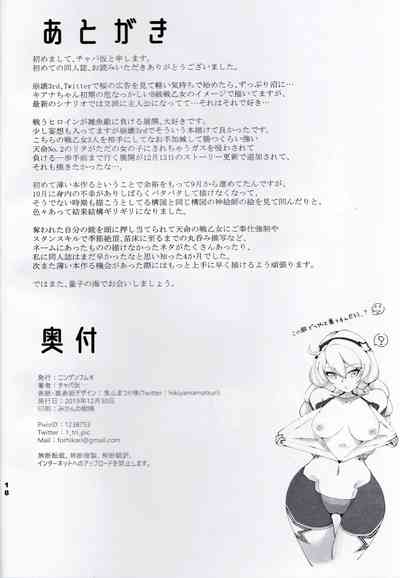 あとがき
初めまして、チャバ仮と申します。
初めての同人誌、お読みいただきありがとうございました。
崩壊3rd、Twitterで桜の広告を見て軽い気持ちで始めたら、ずっぷり沼に…
キアナちゃん初期の危なっかしいB級戦乙女のイメージで描いてますが、
最新のシナリオでは立派に主人公になってて…それはそれで好き…
戦うヒロインが雑魚敵に負ける展開、大好きです。
少し妄想も入ってますが崩壊3rdでそういう本描けて良かったです。
こちらの戦乙女3人を相手にしてなお手加減して勝つくらい強い
天命No.2のリタがただの女の子にされちゃうガスを吸わされて
負ける一歩手前まで行く展開が12月13日のストーリー更新で追加されて、
それも描きたかった…
初めて薄い本作るということで余裕をもって9月から進めてたんですが、
10月に身内の不幸がありしばらくバタバタして描けなくなって、
そうでない時期も描こうとしてる構図と同じ構図の神絵師の絵を見て凹んだりと、
色々あって結果結構ギリギリになりました。
奪われた自分の銃を頭に押し当てられて天命の戦乙女にご奉仕強制や
スタンスキルで季節絶頂、苗床に至るまでの丸呑み描写など、
ネームにあったものの描けなかったネタがたくさんあったり、
私に同人誌はまだ早かったなと思い知った4か月でした。
次また薄い本作る機会があった際にはもっと上手に早く描けるよう頑張ります。
ではまた、量子の海でお会いしましょう。
奥付
発行：ニンゲンフムキ
著者：チャバ仮
発行日：2019年12月30日
印刷：みかんの樹様
PixivID：1238753
Twitter：t_tri_pic
Mail：forhikari@gmail.com
無断転載、無断複製、無断翻訳、
インターネットへのアップロードを禁止します。
18